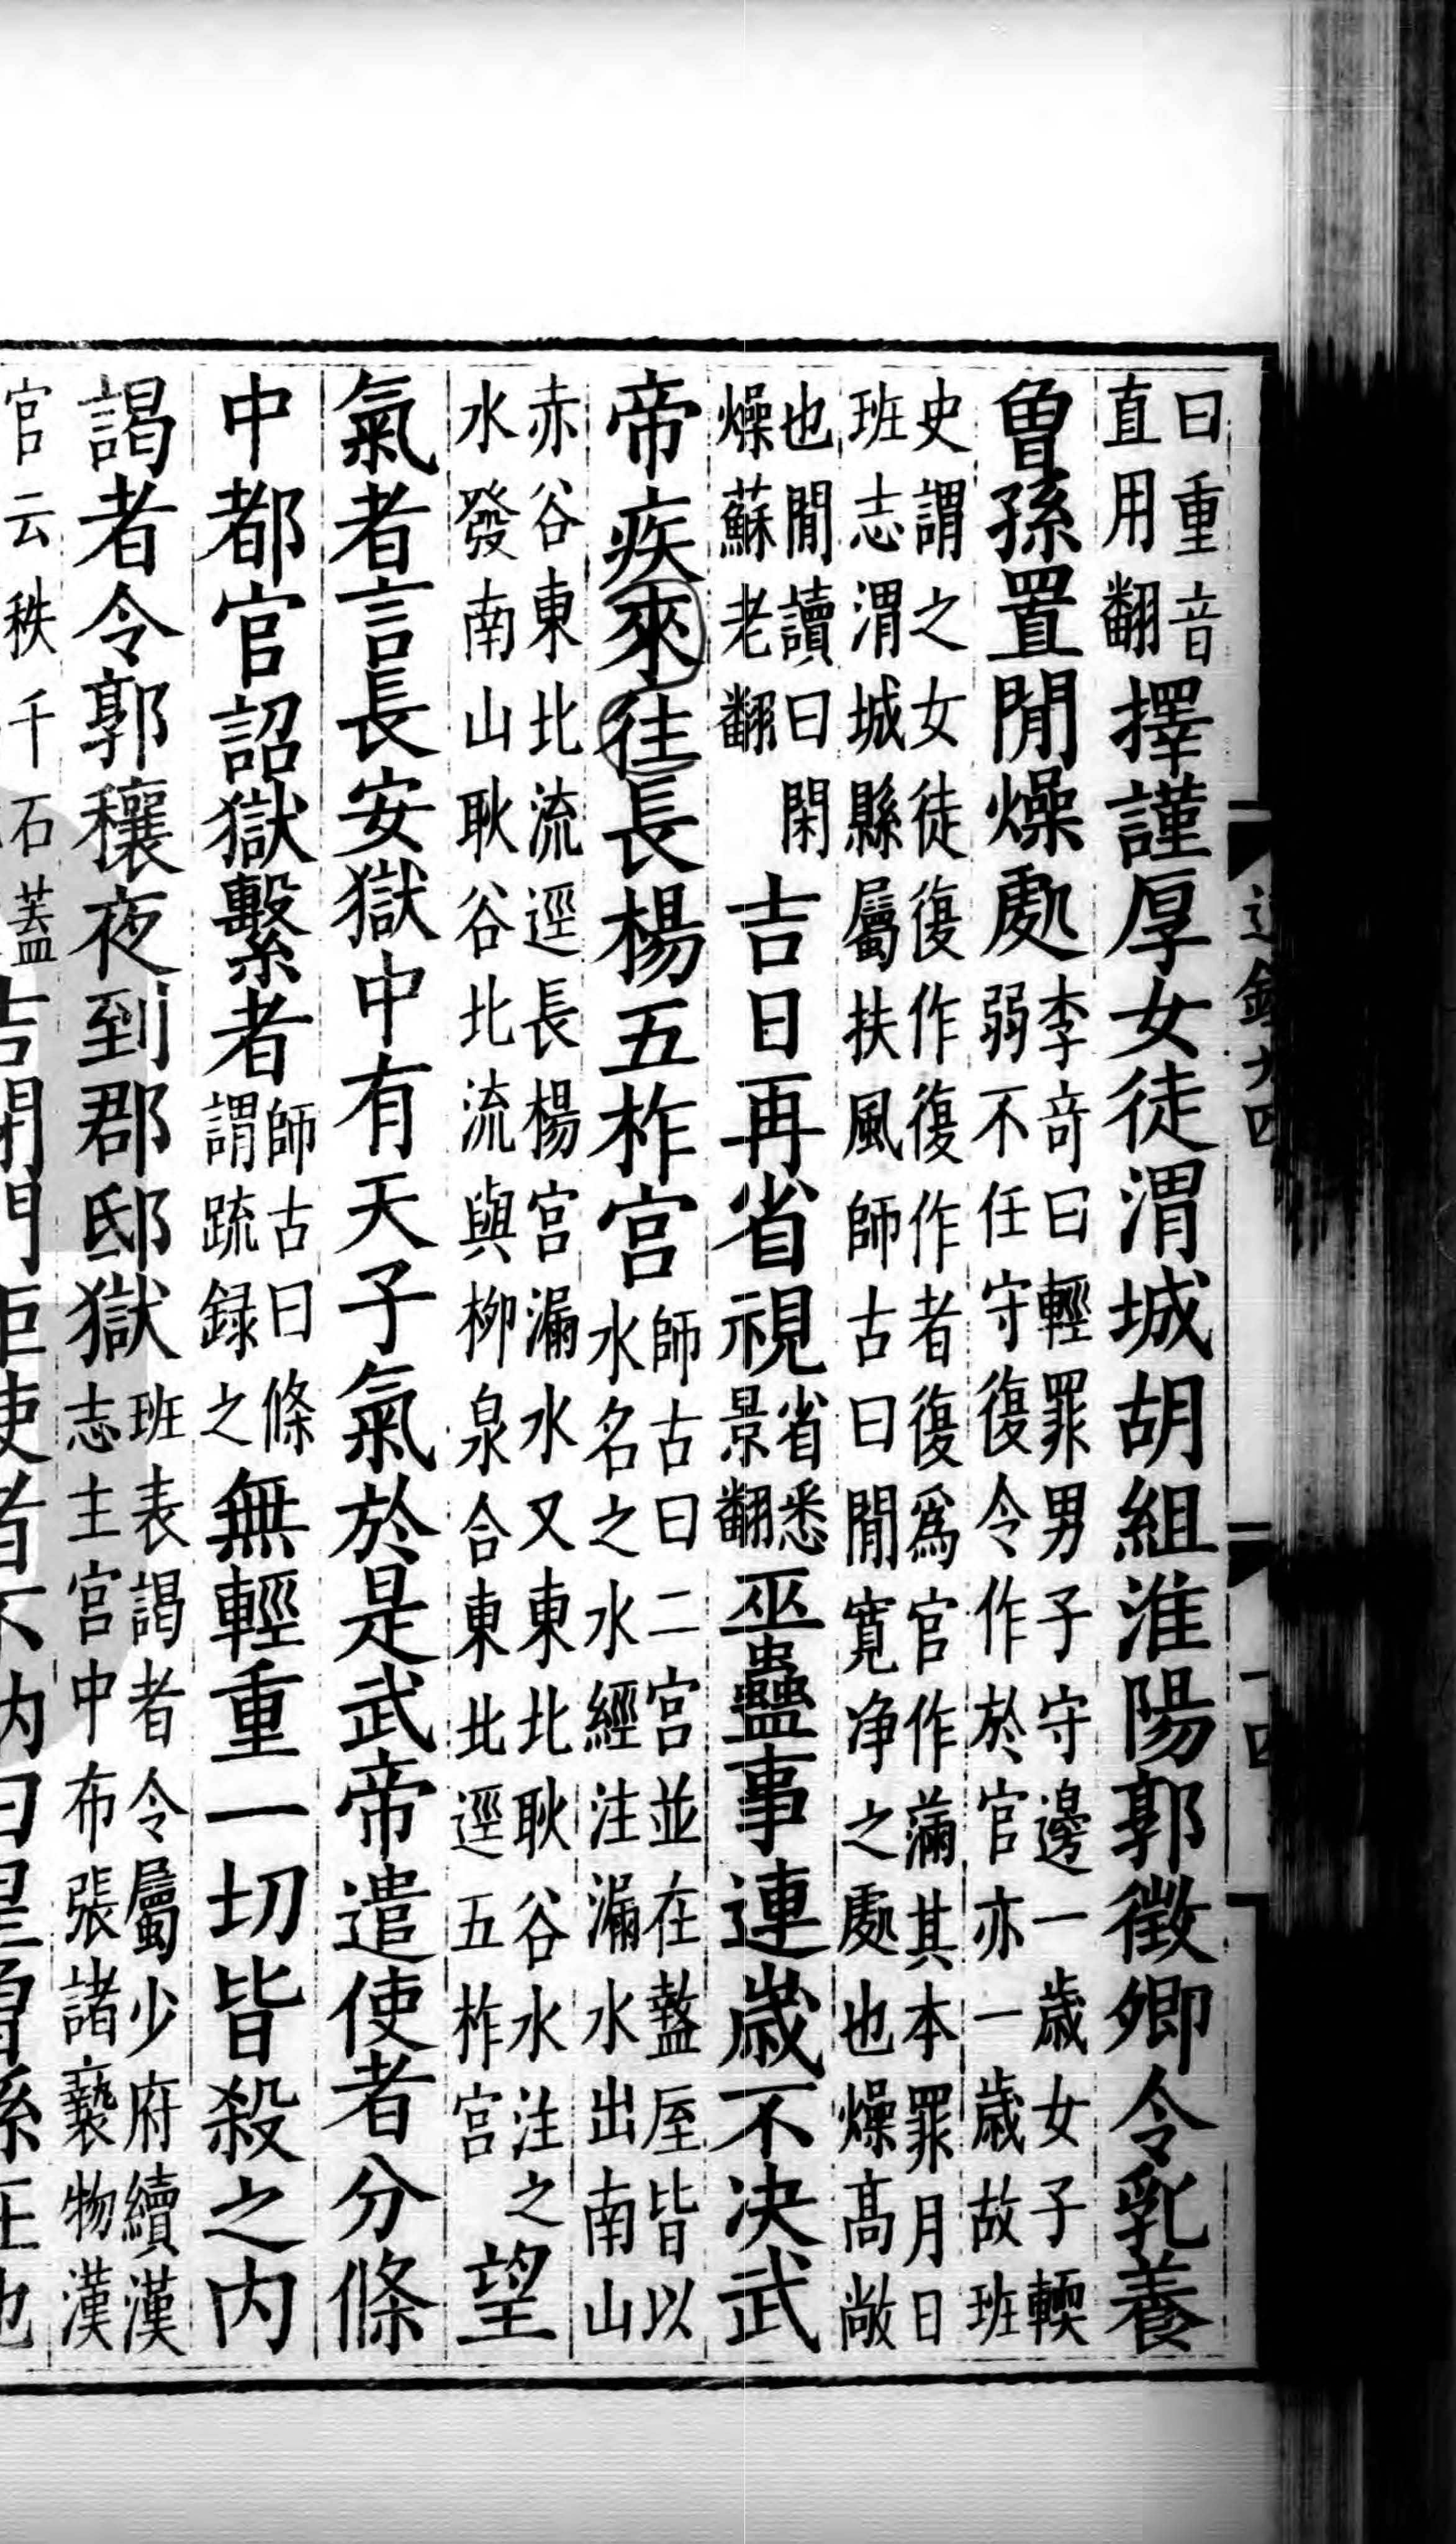 曰重音直用翻擇謹厚女徒渭城胡組淮陽郭徵卿令乳養
曾孫置閒燥處李奇曰輕罪男子守邊一歲女子輭弱不任守復令作於官亦一歲故班
史謂之女徒復作復作者復爲官作滿其本罪月日班志渭城縣屬扶風師古曰閒寛净之處也燥高敞
也閒讀曰閑燥蘇老翻吉日再省視省悉景翻巫蠱事連歲不决武
帝疾來往長楊五柞宮師古曰二宮並在盩厔皆以水名之水經注漏水出南山
赤谷東北流逕長楊宮漏水又東北耿谷水注之水發南山耿谷北流與柳泉合東北逕五柞宮望
氣者言長安獄中有天子氣於是武帝遣使者分條
中都官詔獄繫者師古曰條謂疏録之無輕重一切皆殺之内
謁者令郭穰夜到郡邸獄班表謁者令屬少府續漢志主宮中布張諸褻物漢
官云秩千石蓋